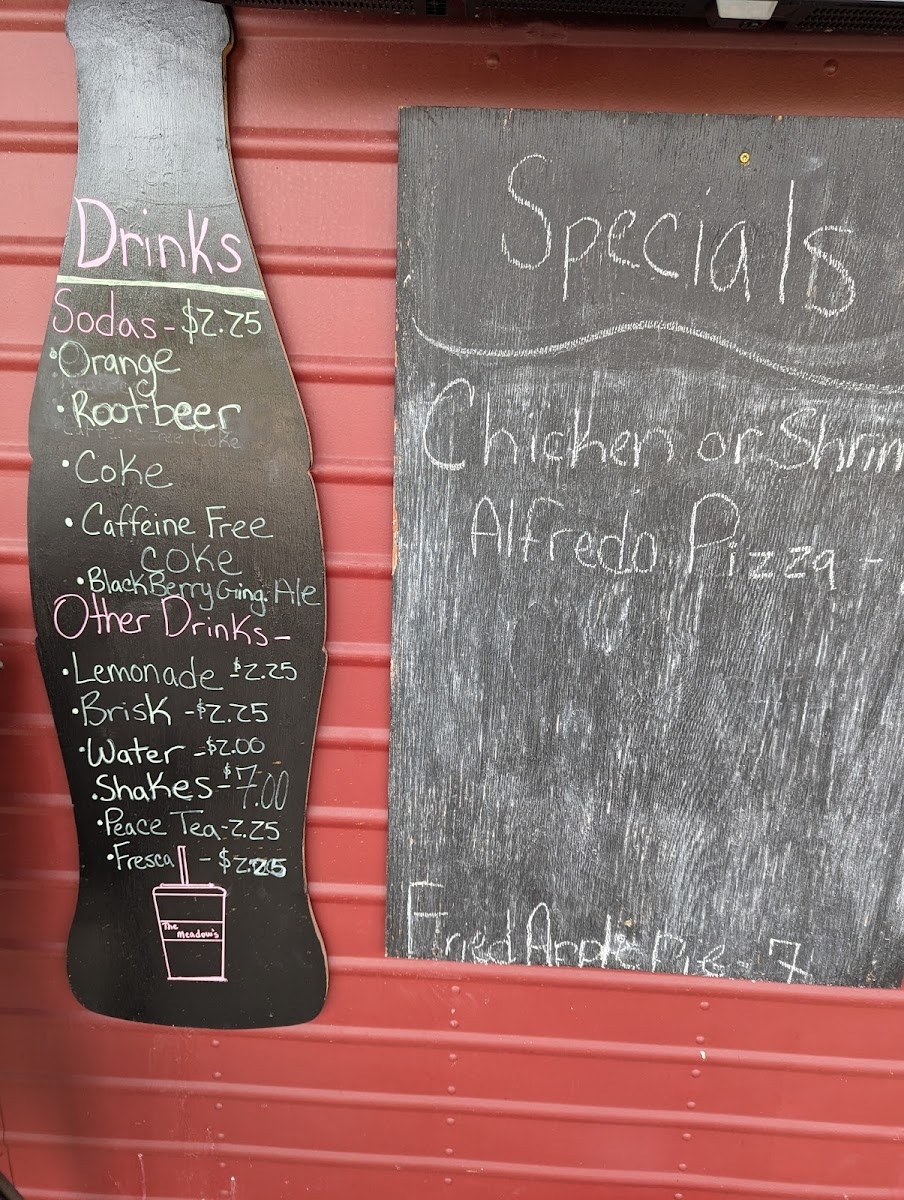 Drinks
Sodas - $2.25
• Orange
• Rootbeer
Caffeine Free Coke
• Coke
• Caffeine Free
Coke
• BlackBerry Ging. Ale
Other Drinks -
• Lemonade - $2.25
• Brisk - $2.25
• Water - $2.00
• Shakes - $7.00
• Peace Tea - 2.25
• Fresca - $2.25
The
Meadow's
Specials
Chicken or Shrim
Alfredo Pizza -
Fried Apple Pie - 7